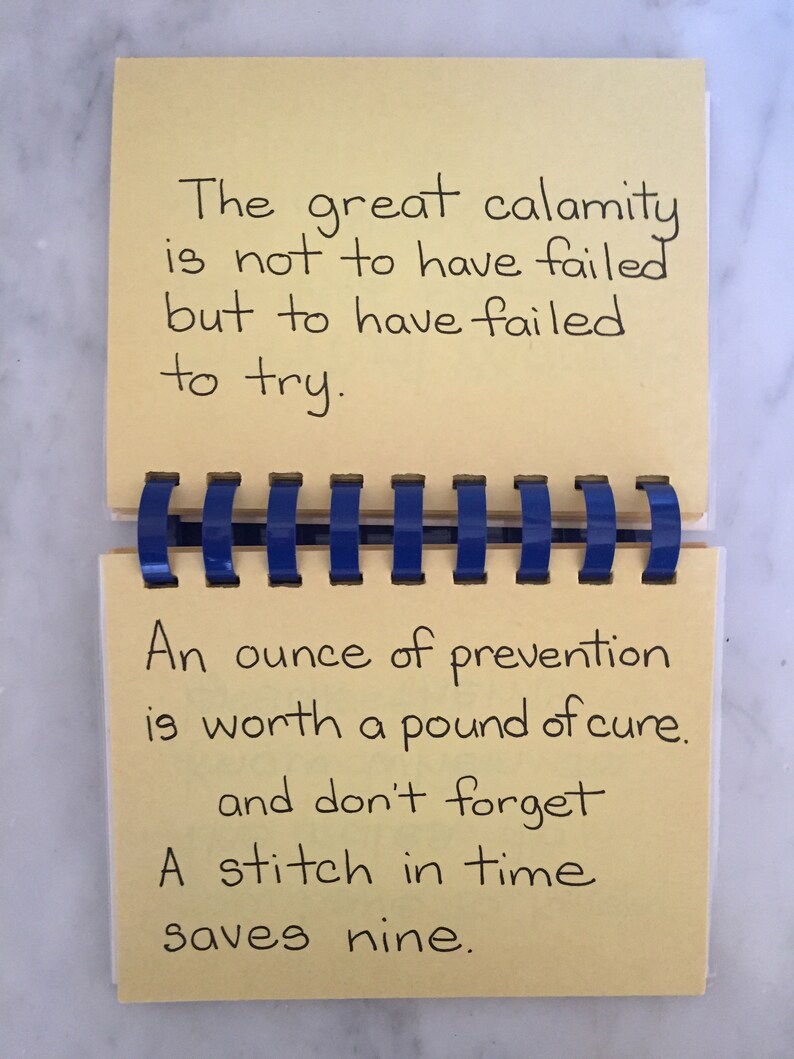 The great calamity
is not to have failed
but to have failed
to try.
An ounce of prevention
is worth a pound of cure.
and don't forget
A stitch in time
saves nine.